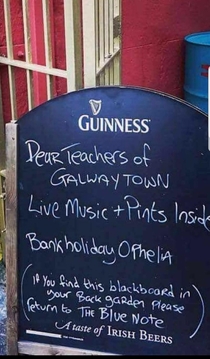 GUINNESS
Dear Teachers of
GALWAY TOWN
Live Music + Pints Inside
Bankholiday Ophelia
(If You find this blackboard in
your Back garden Please
return to THE Blue Note)
A taste of IRISH BEERS